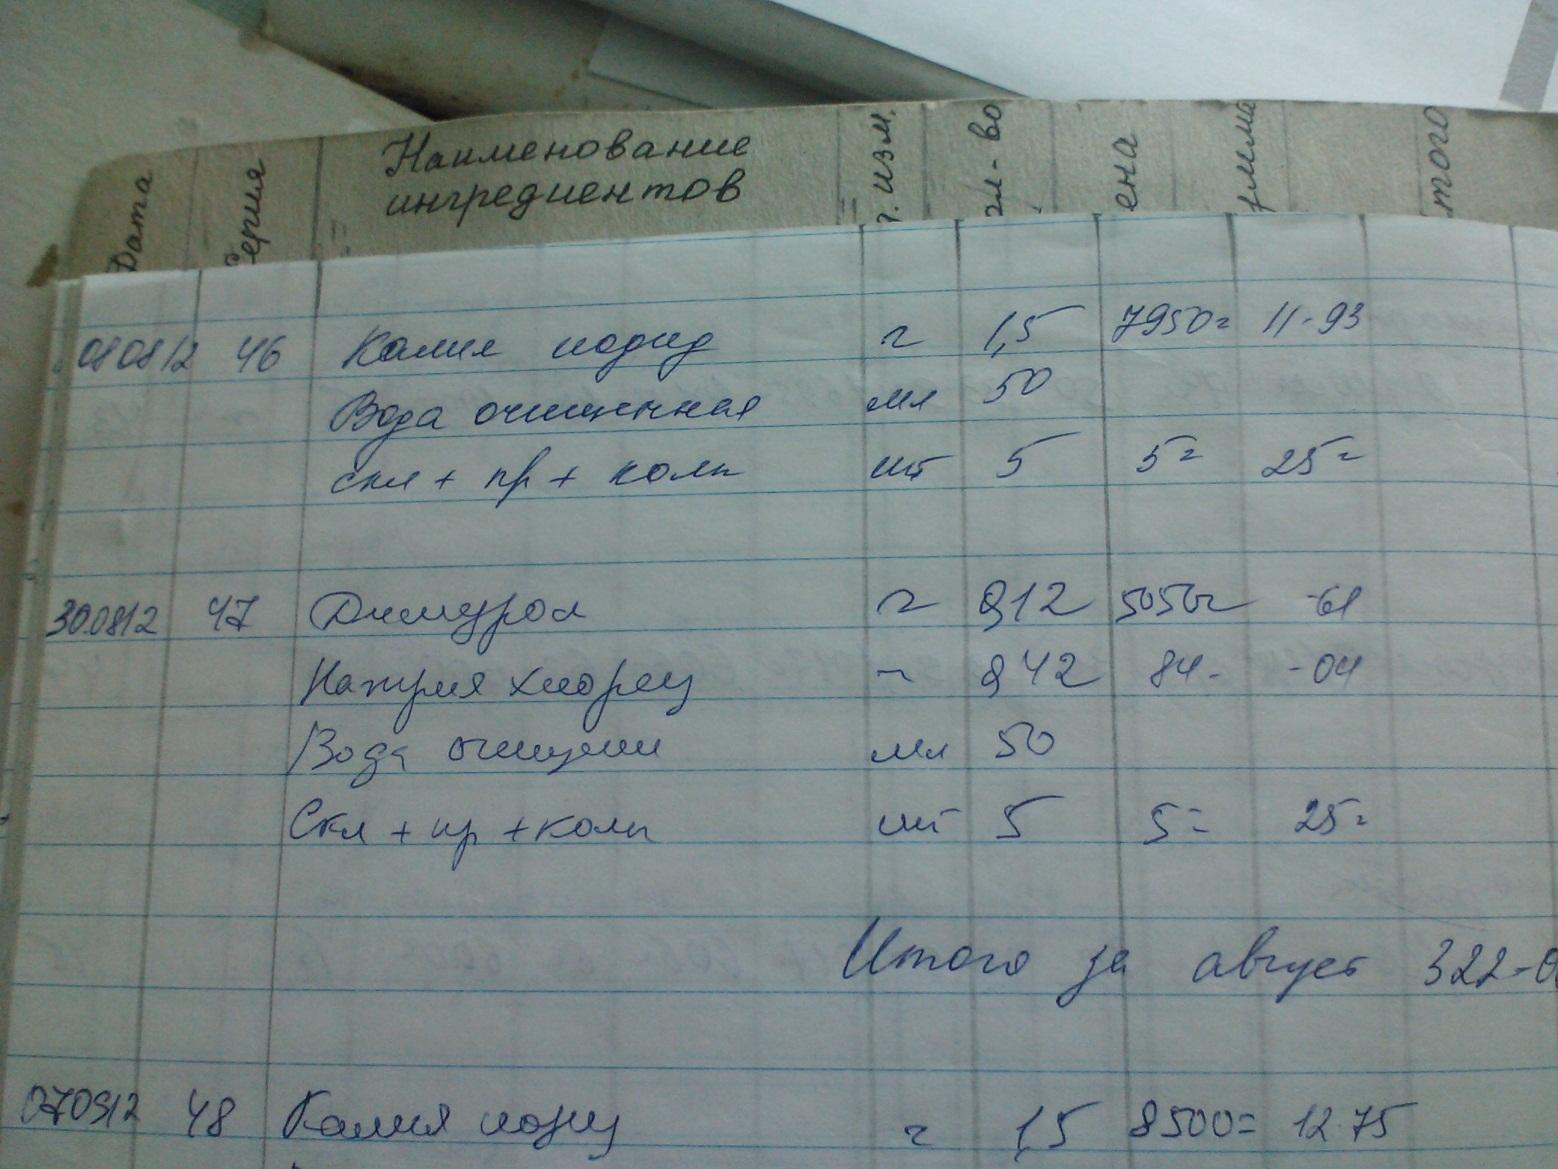 Дата Серия Наименование ингредиентов г. изм. ол-во ена умма того
080812 46 Калия иодид г 1,5 7950= 11-93
Вода очищенная мл 50
скл + пр + колп шт 5 5= 25=
30.0812 47 Димедрол г 0,12 5050= -61
Натрия хлорид г 0,42 84- -04
Вода очищенн мл 50
Скл + пр + колп шт 5 5= 25=
Итого за август 322-0
070912 48 Калия иодид г 1,5 8500= 12.75